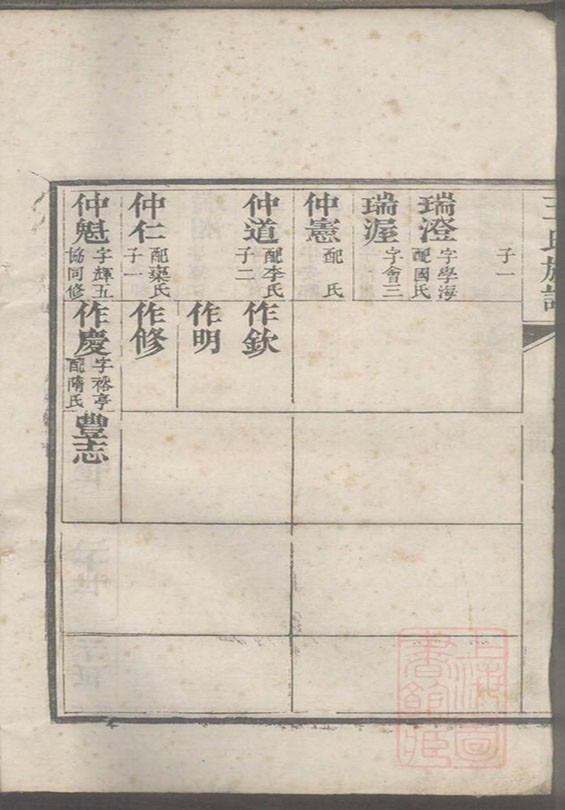 王氏族譜
子一
瑞澄
字學海
配國氏
瑞渥
字會三
仲憲
配 氏
仲道
配李氏
子二
作欽
作明
仲仁
配龐氏
子一
作修
仲魁
字輝五
協同修
作慶
字裕亭
配隋氏
豐志
上海圖
書館藏